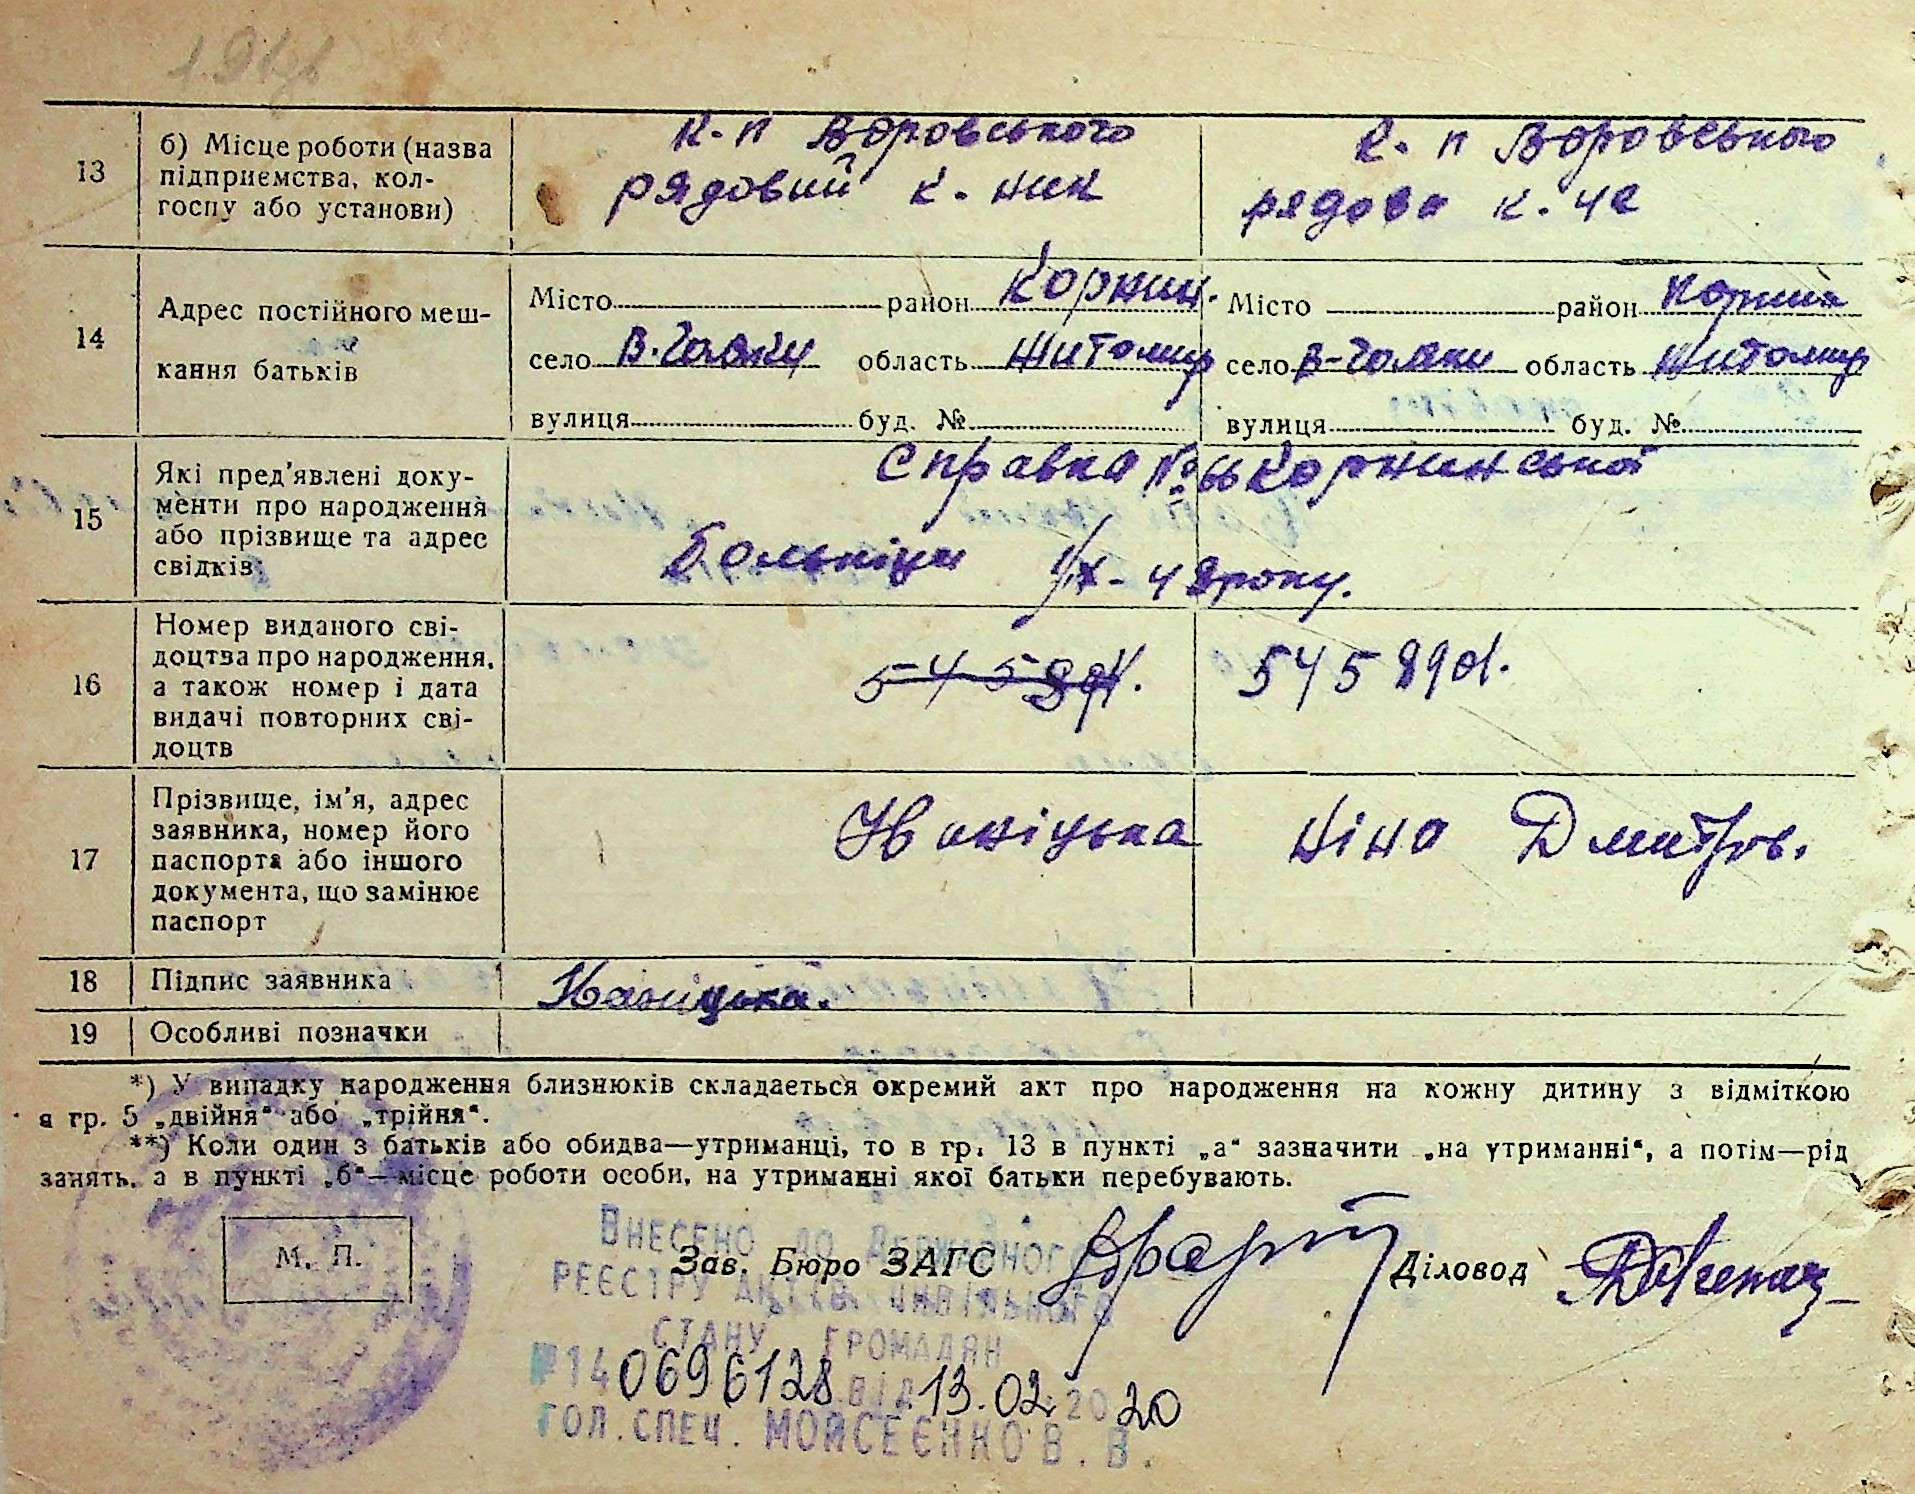 13
б) Місце роботи (назва
підприємства, кол-
госпу або установи)
к-п Воровського
рядовий к. ник
к. п Воровського
рядова к. ча
14
Адрес постійного меш-
кання батьків
Місто район Корнин.
село В. Голяки область Житомир
вулиця буд. №
Місто район Корнин
село В-Голяки область Житомир
вулиця буд. №
15
Які пред’явлені доку-
менти про народження
або прізвище та адрес
свідків
Справка № Корнинської
больніци року.
16
Номер виданого сві-
доцтва про народження,
а також номер і дата
видачі повторних сві-
доцтв
54589
54589
17
Прізвище, ім’я, адрес
заявника, номер його
паспорта або іншого
документа, що замінює
паспорт
Ніна Дмитров.
18
Підпис заявника
19
Особливі позначки
*) У випадку народження близнюків складається окремий акт про народження на кожну дитину з відміткою
в гр. 5 „двійня“ або „трійня“.
**) Коли один з батьків або обидва—утриманці, то в гр. 13 в пункті „а“ зазначити „на утриманні“, а потім—рід
занять, а в пункті „б“—місце роботи особи, на утриманні якої батьки перебувають.
М. П.
Зав. Бюро ЗАГС
Діловод
ВНЕСЕНО ДО ДЕРЖАВНОГО
РЕЄСТРУ АКТІВ ЦИВІЛЬНОГО
СТАНУ ГРОМАДЯН
№140696128 ВІД 13.02.2020
ГОЛ. СПЕЦ. МОЙСЕЄНКО В. В.